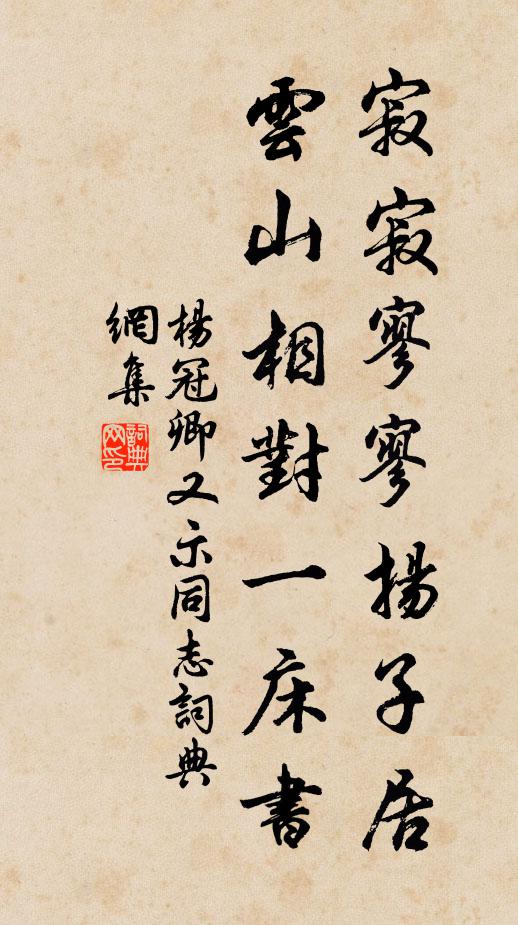 寂寂寥寥揚子居
雲山相對一床書
楊冠卿又示同志詞典
網集
詞典網印